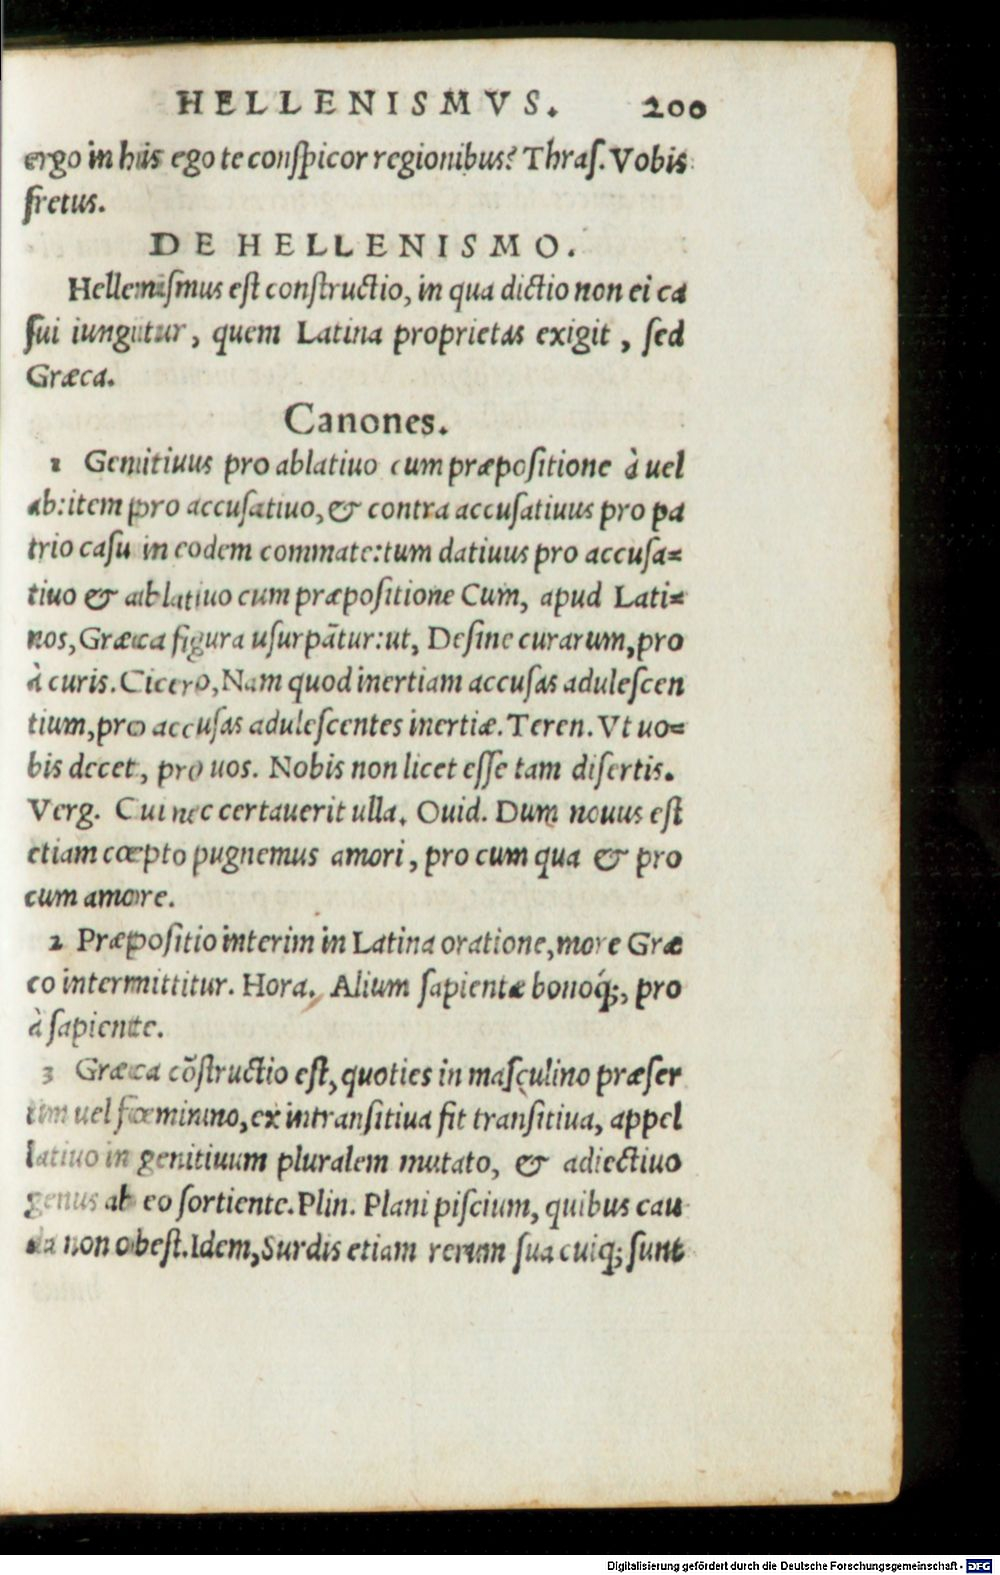 HELLENISMVS. 200
ergo in hiis ego te conſpicor regionibus? Thraſ. Vobis
fretus.
DE HELLENISMO.
Helleniſmus eſt conſtructio, in qua dictio non ei ca
ſui iungitur, quem Latina proprietas exigit, ſed
Græca.
Canones.
1 Genitiuus pro ablatiuo cum præpoſitione à uel
ab: item pro accuſatiuo, & contra accuſatiuus pro pa
trio caſu in eodem commate: tum datiuus pro accuſa=
tiuo & ablatiuo cum præpoſitione Cum, apud Lati=
nos, Græca figura uſurpātur: ut, Deſine curarum, pro
à curis. Cicero, Nam quod inertiam accuſas aduleſcen
tium, pro accuſas aduleſcentes inertiæ. Teren. Vt uo=
bis decet, pro uos. Nobis non licet eſſe tam diſertis.
Verg. Cui nec certauerit ulla. Ouid. Dum nouus eſt
etiam cœpto pugnemus amori, pro cum qua & pro
cum amore.
2 Præpoſitio interim in Latina oratione, more Græ
co intermittitur. Hora. Alium ſapientæ bonoq́;, pro
à ſapiente.
3 Græca cōſtructio eſt, quoties in maſculino præſer
tim uel fœminino, ex intranſitiua fit tranſitiua, appel
latiuo in genitiuum pluralem mutato, & adiectiuo
genus ab eo ſortiente. Plin. Plani piſcium, quibus cau
da non obeſt. Idem, Surdis etiam rerum ſua cuiq; ſunt
Digitalisierung gefördert durch die Deutsche Forschungsgemeinschaft - DFG